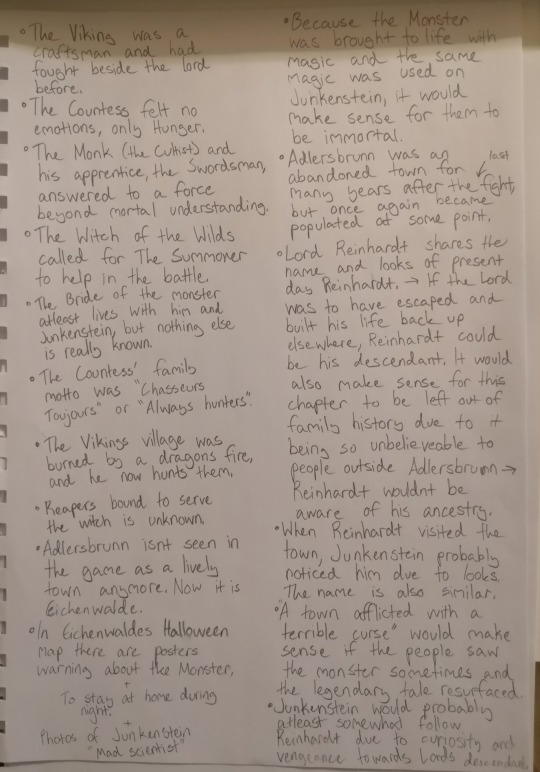 • The Viking was a
craftsman and had
fought beside the lord
before.
• The Countess felt no
emotions, only Hunger.
• The Monk (the Cultist) and
his apprentice, the Swordsman,
answered to a force
beyond mortal understanding.
• The Witch of the Wilds
called for The Summoner
to help in the battle.
• The Bride of the monster
atleast lives with him and
Junkenstein, but nothing else
is really known.
• The Countess' family
motto was "Chasseurs
Toujours" or "Always hunters".
• The Vikings village was
burned by a dragons fire,
and he now hunts them.
• Reapers bound to serve
the witch is unknown.
• Adlersbrunn isnt seen in
the game as a lively
town anymore. Now it is
Eichenwalde.
• In Eichenwaldes Halloween
map there are posters
warning about the Monster,
+
To stay at home during
night.
+
Photos of Junkenstein
"Mad scientist"
• Because the Monster
was brought to life with
magic and the same
magic was used on
Junkenstein, it would
make sense for them to
be immortal.
• Adlersbrunn was an
abandoned town for last
many years after the fight,
but once again became
populated at some point.
• Lord Reinhardt shares the
name and looks of present
day Reinhardt. → If the Lord
was to have escaped and
built his life back up
elsewhere, Reinhardt could
be his descendant. It would
also make sense for this
chapter to be left out of
family history due to it
being so unbelieveable to
people outside Adlersbrunn →
Reinhardt wouldnt be
aware of his ancestry.
• When Reinhardt visited the
town, Junkenstein probably
noticed him due to looks.
The name is also similar.
• "A town afflicted with a
terrible curse" would make
sense if the people saw
the monster sometimes and
the legendary tale resurfaced.
• Junkenstein would probably
atleast somewhat follow
Reinhardt due to curiosity and
vengeance towards Lords descendant.